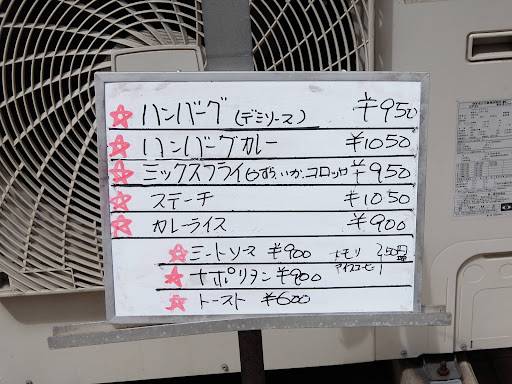 ☆ハンバーグ(デミソース) ¥950
☆ハンバーグカレー ¥1050
☆ミックスフライ(うずら、いか、コロッケ ¥950
☆ステーキ ¥1050
☆カレーライス ¥900
☆ミートソース ¥900 大モリ 250円
☆ナポリタン ¥900 アイスコーヒー
☆トースト ¥600